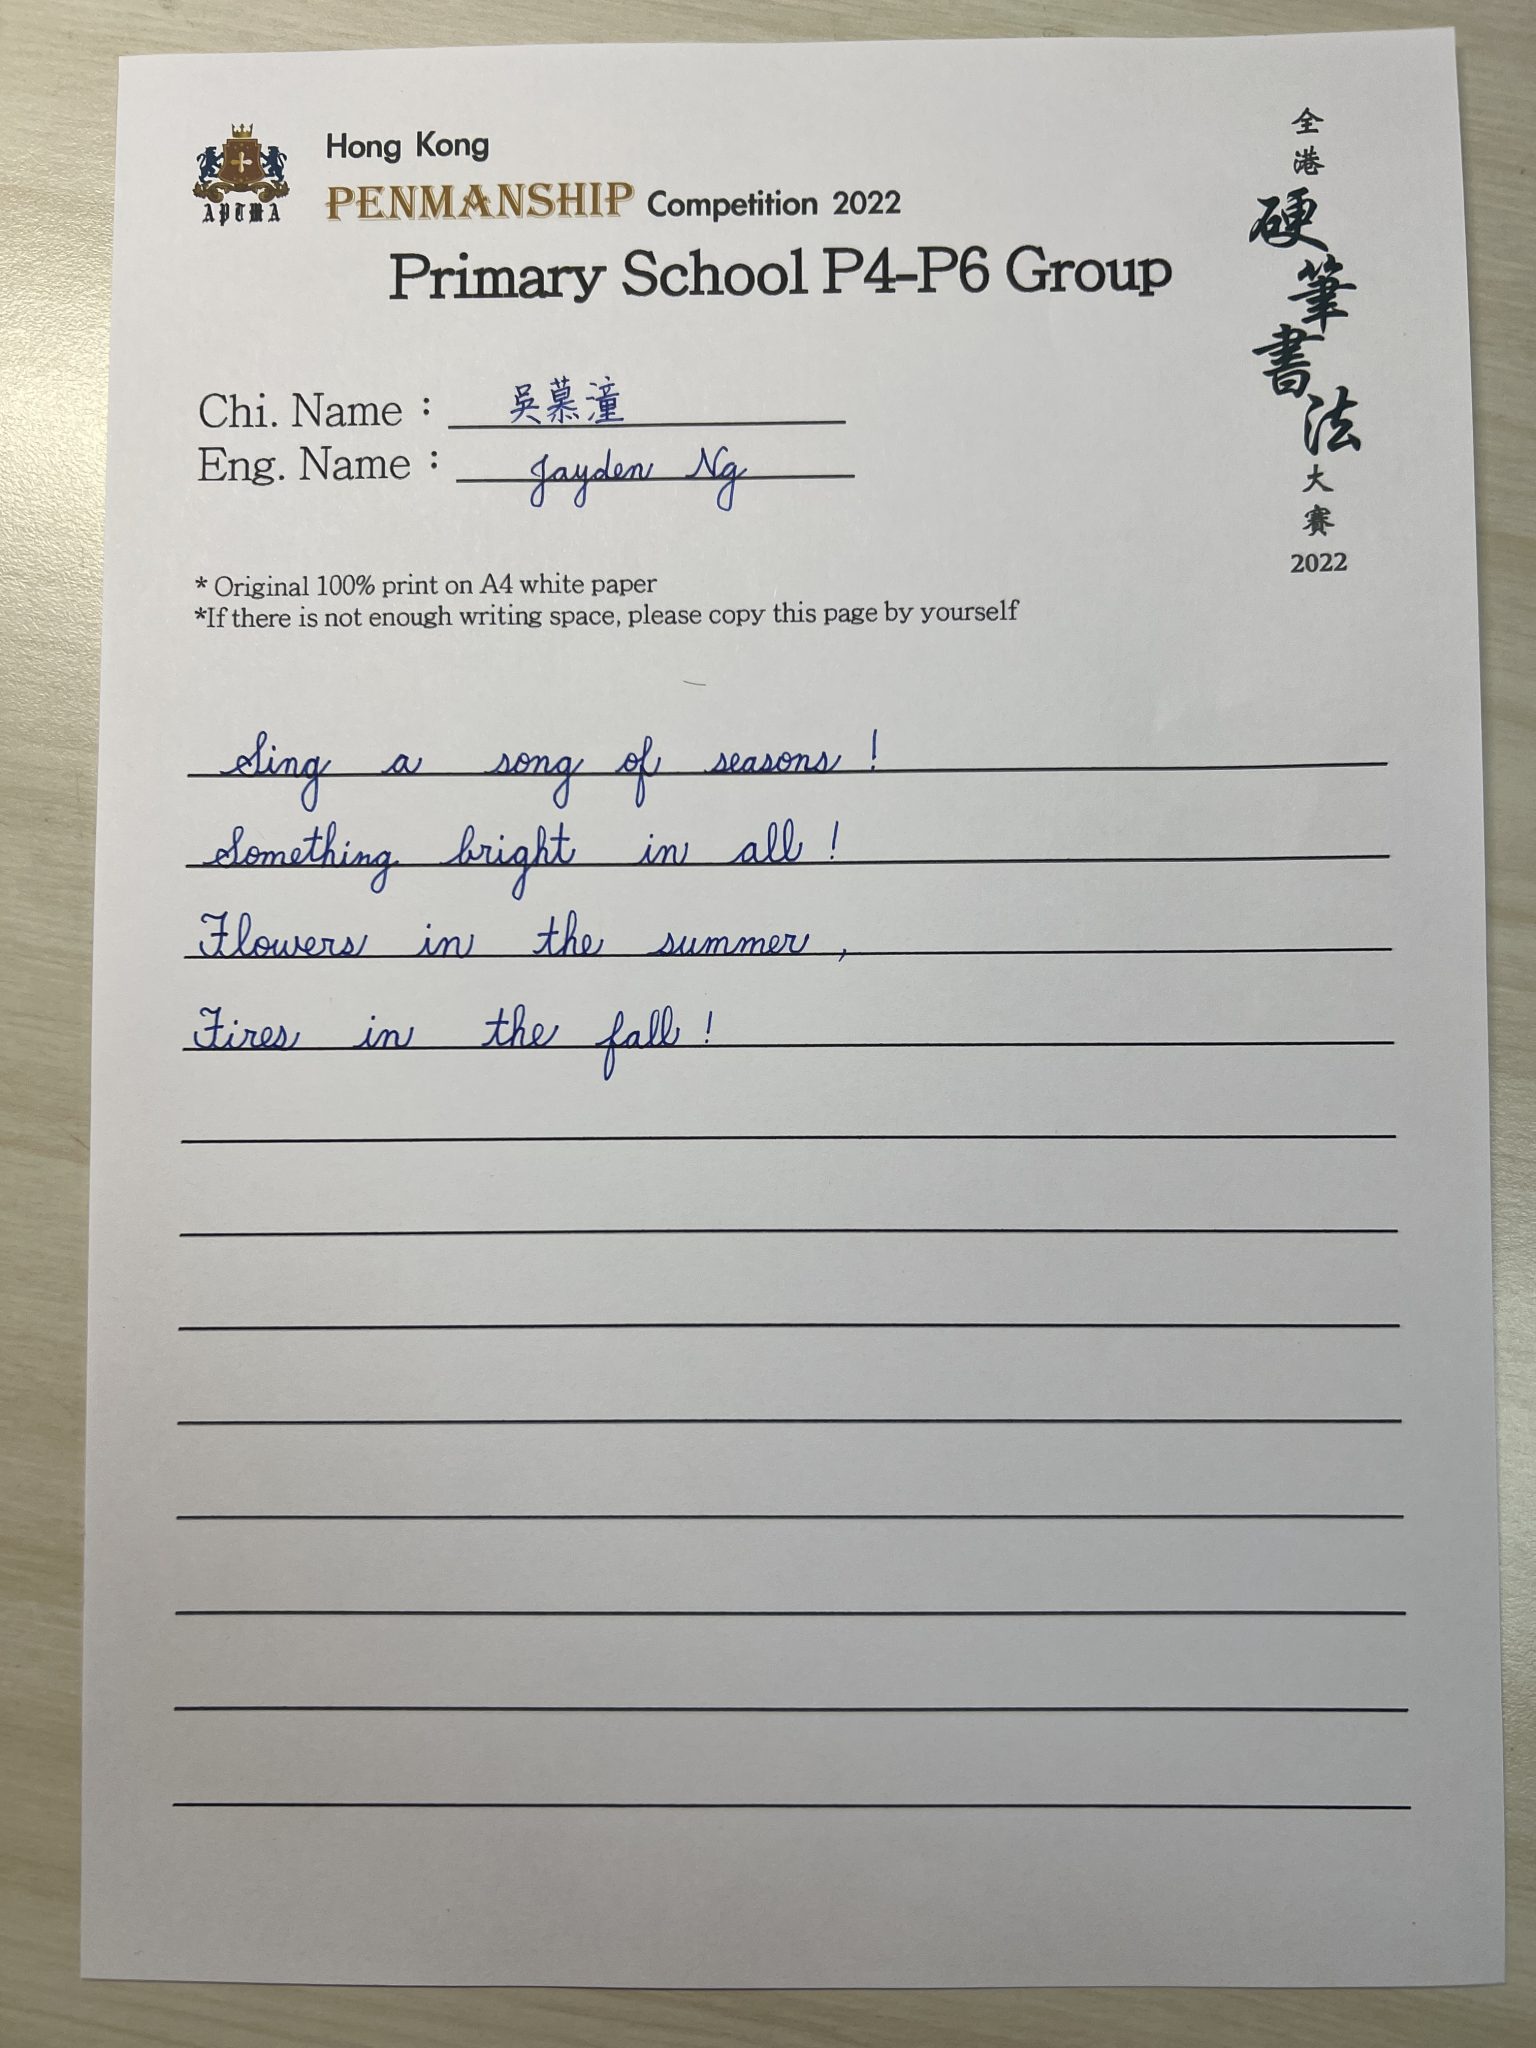 APTMA
Hong Kong
PENMANSHIP Competition 2022
Primary School P4-P6 Group
全港硬筆書法大賽
2022
Chi. Name : 吳慕潼
Eng. Name : Jayden Ng
* Original 100% print on A4 white paper
*If there is not enough writing space, please copy this page by yourself
Sing a song of seasons!
Something bright in all!
Flowers in the summer,
Fires in the fall!